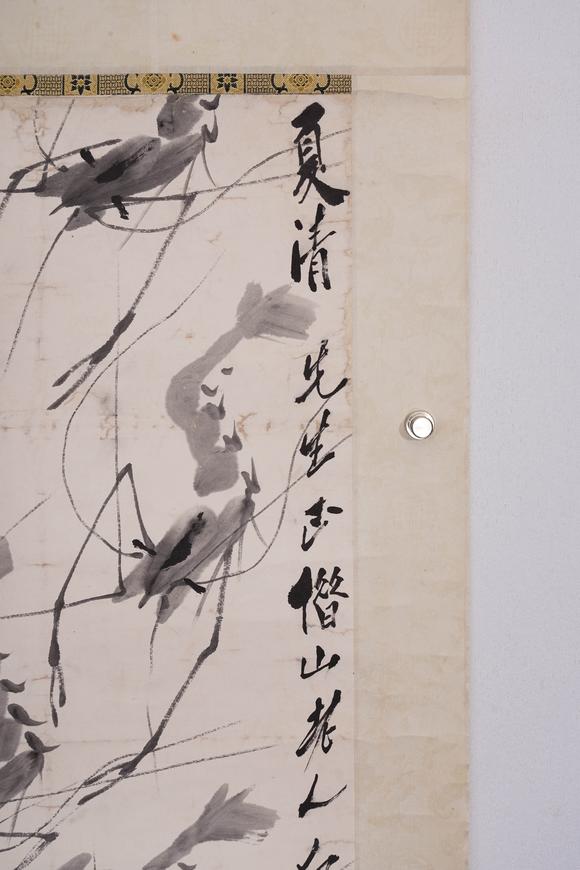 夏清 先生正借山老人